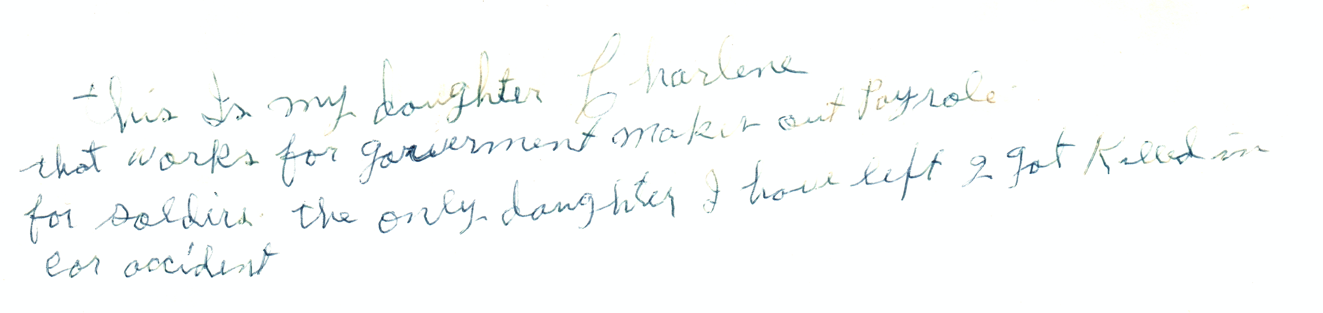 this Is my daughter Charlene
that works for government makes out Payrole
for soldirs. the only daughter I have left 2 got Killed in
car accident